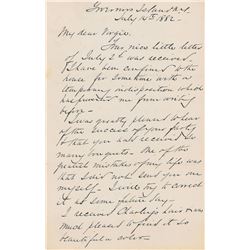 Governors Island N.Y.
July 15th 1882
My dear Virgie.
Your nice little letter
of July 2d was received
I have been confined to the
house for sometime with a
temporary indisposition which
has prevented me from writing
before.
I was greatly pleased to hear
of the success of your party
& that you had received so
many bouquets. One of the
great mistakes of my life was
that I did not send you one
myself. I will try to correct
it at some future day.
I received Charley's hair & was
much pleased to find it so
beautiful a color